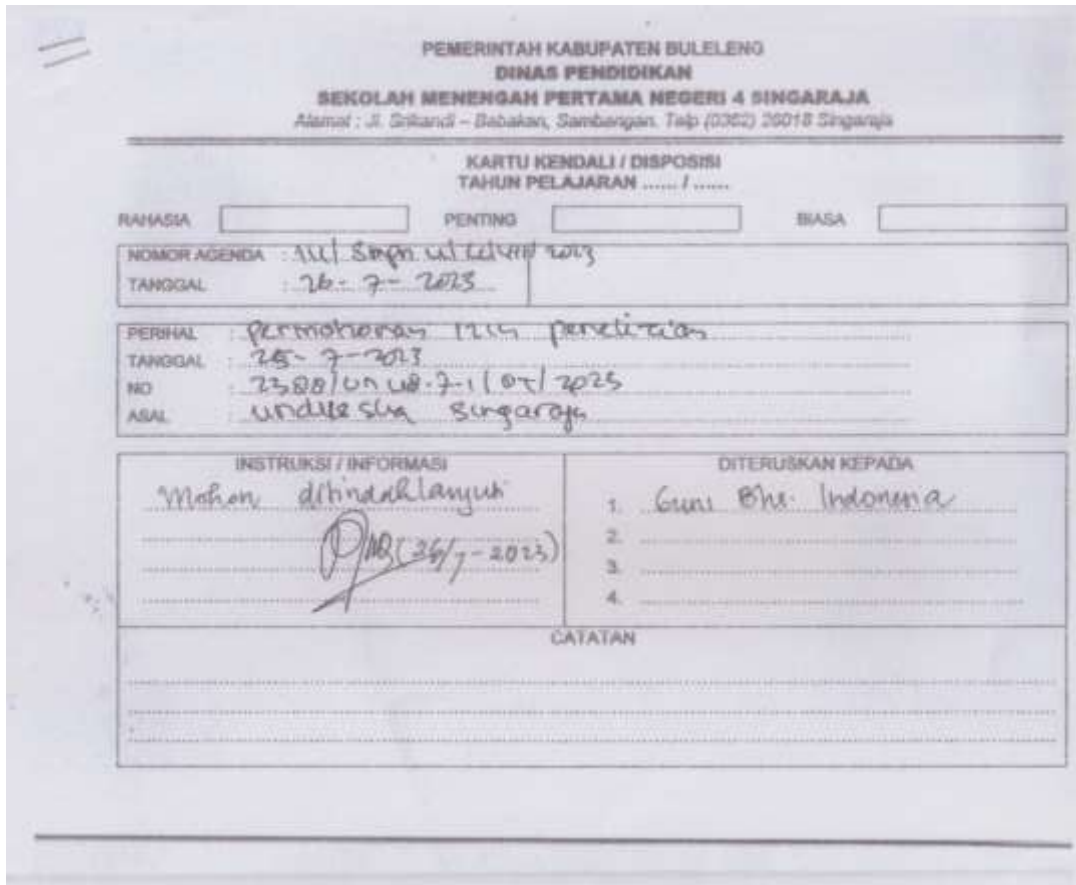 PEMERINTAH KABUPATEN BULELENG
DINAS PENDIDIKAN
SEKOLAH MENENGAH PERTAMA NEGERI 4 SINGARAJA
Alamat : Jl. Srikandi – Babakan, Sambangan. Telp (0362) 26018 Singaraja
KARTU KENDALI / DISPOSISI
TAHUN PELAJARAN ...... / ......
RAHASIA PENTING BIASA
NOMOR AGENDA : 2023
TANGGAL : 26 - 7 - 2023
PERIHAL : Permohonan izin penelitian
TANGGAL : 25 - 7 - 2023
NO :
ASAL : undiksha singaraja
INSTRUKSI / INFORMASI DITERUSKAN KEPADA
Mohon ditindaklanjuti
1. Guru Bhs. Indonesia
2.
(26/7 - 2023)
3.
4.
CATATAN